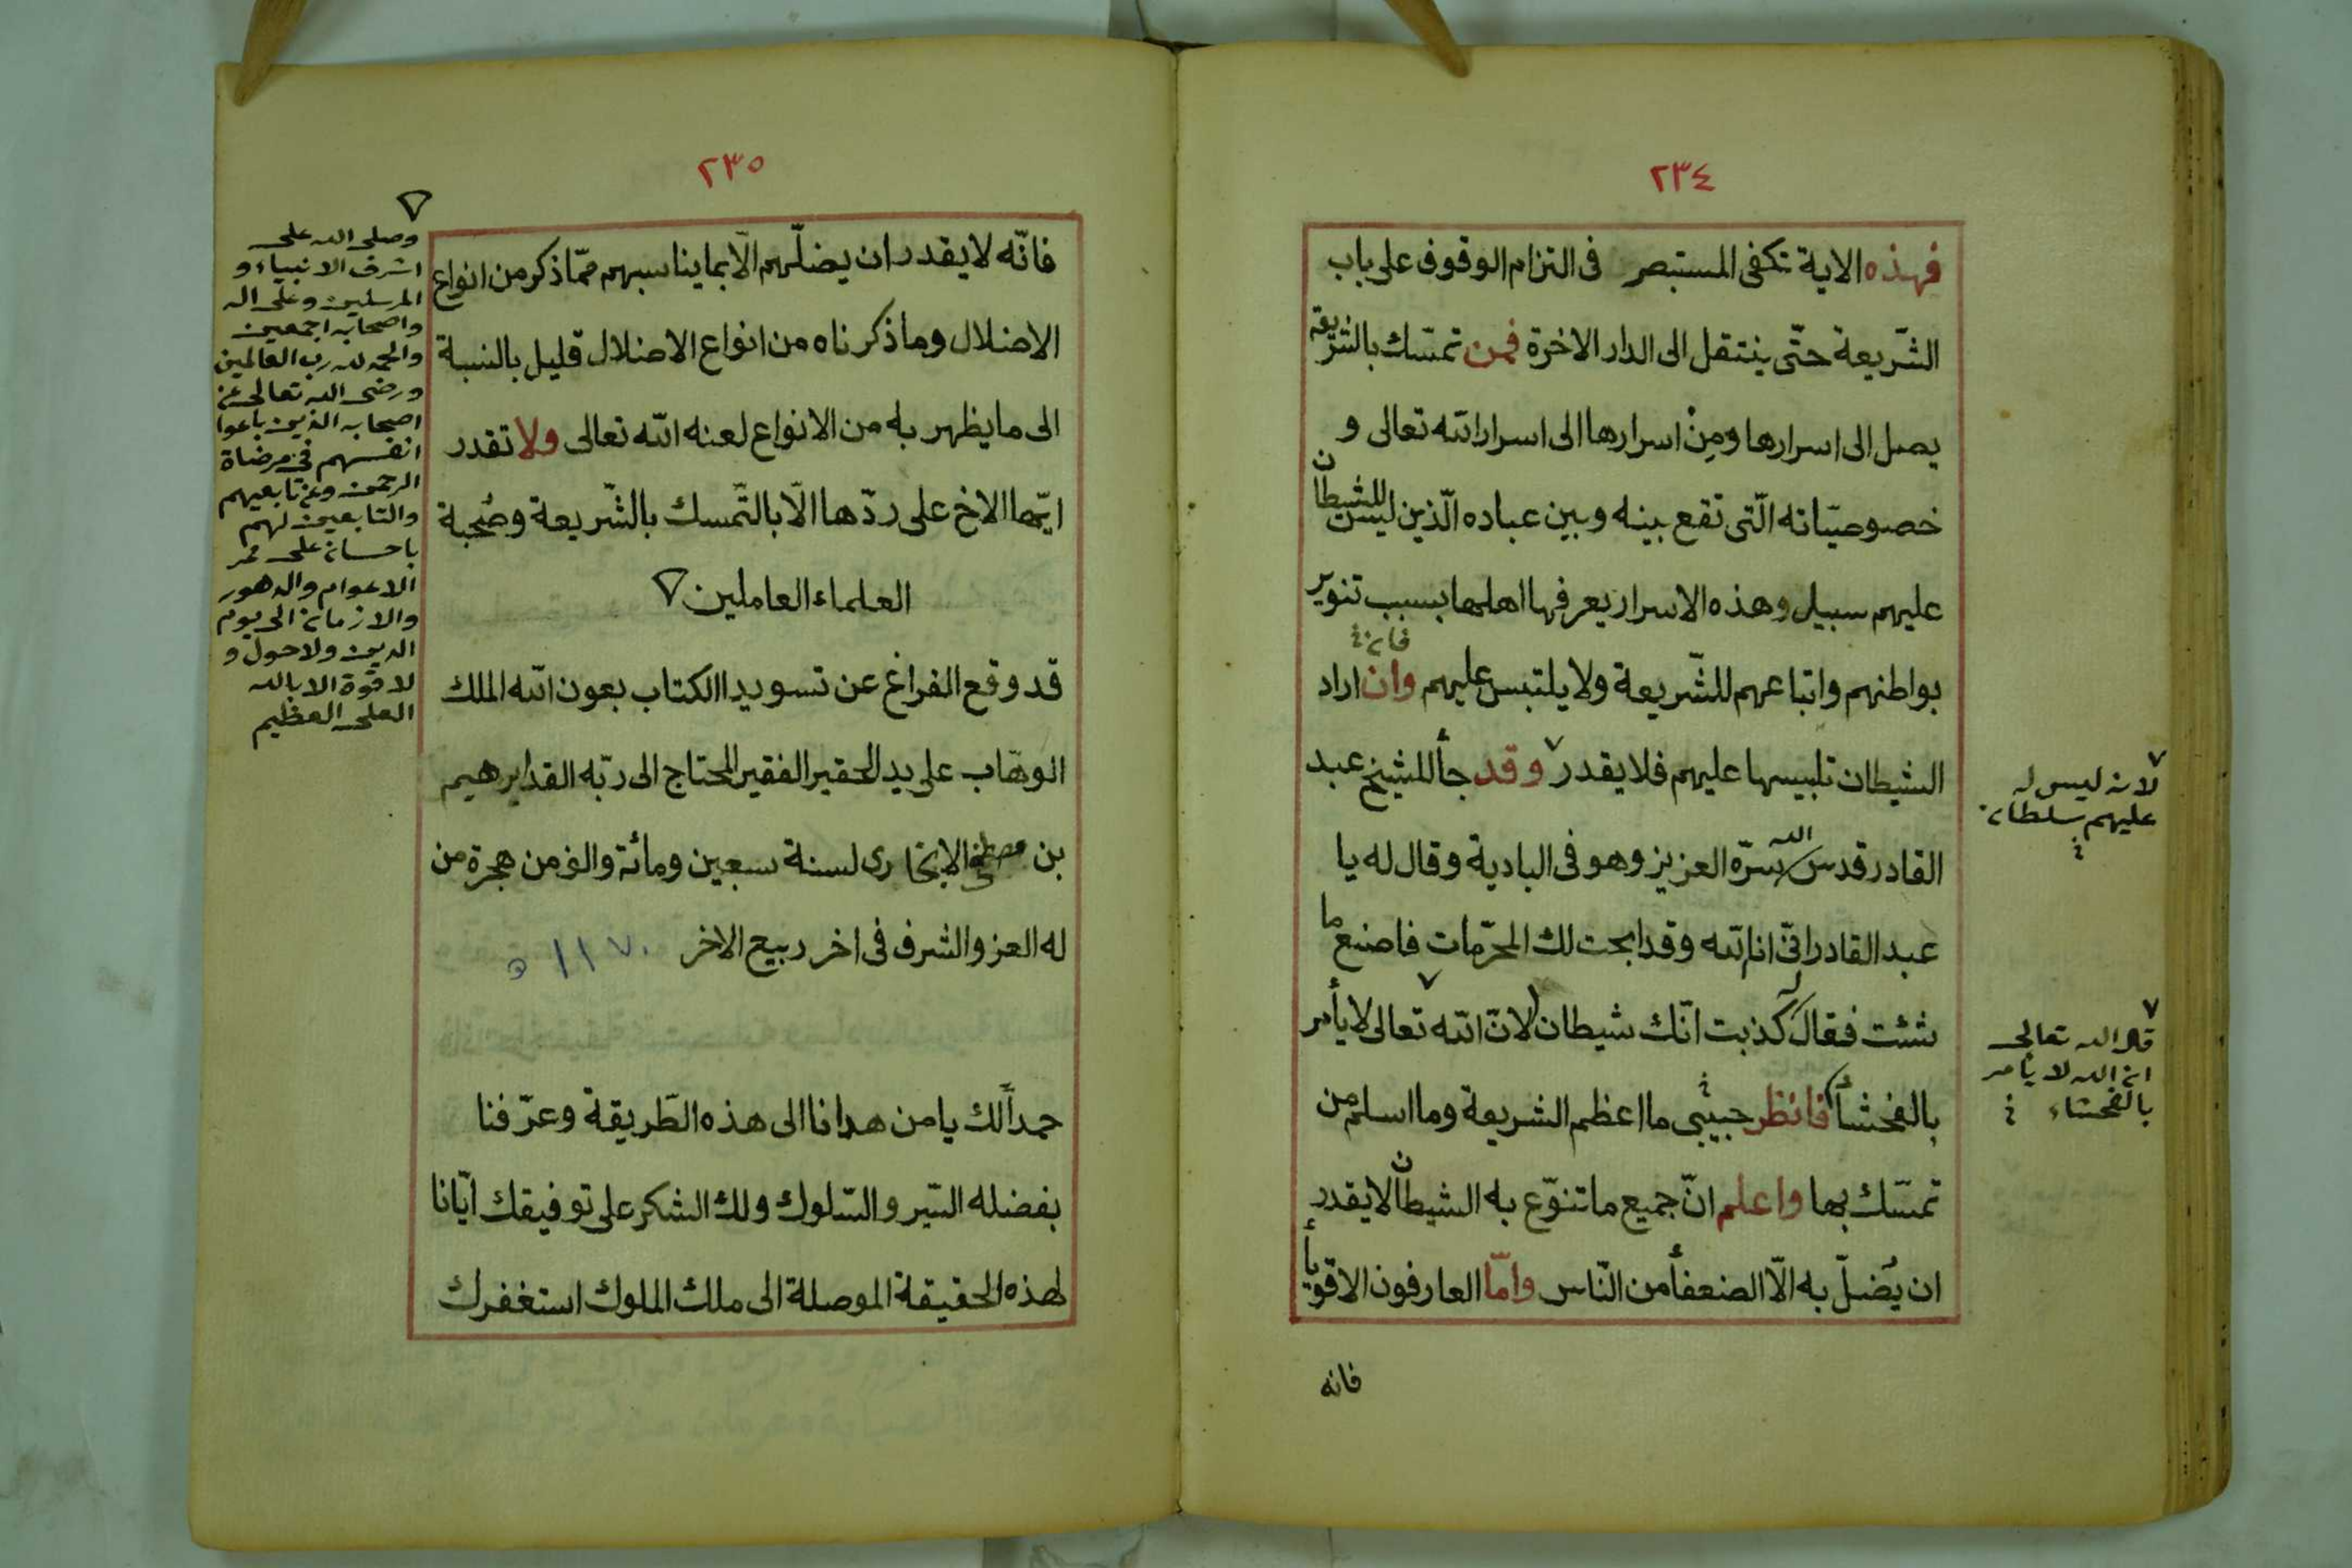 ٢٣٤
فهذه الاية تكفى المستبصر فى التزام الوقوف على باب
الشّريعة حتّى ينتقل الى الدار الاخرة فمن تمسّك بالشّريعة
يصل الى اسرارها ومِنْ اسرارها الى اسرار الله تعالى و
خصوصيّاته الّتى تقع بينه وبين عباده الّذين ليس للشيطان
عليهم سبيل وهذه الاسرار يعرفها اهلها بسبب تنوير
بواطنهم واتباعهم للشّريعة ولا يلتبس عليهم وان اراد
فان
الشيطان تلبيسها عليهم فلا يقدر وقد جأ للشيخ عبد
القادر قدس الله سرّه العزيز وهو فى البادية وقال له يا
عبد القادر انّى انا الله وقد ابحت لك المحرّمات فاصنع ما
شئت فقال كذبت انّك شيطان لانّ الله تعالى لا يأمر
بالفحشأ فانظر حبيبى ما اعظم الشريعة وما اسلم من
تمسّك بها واعلم انّ جميع ما تنوّع به الشيطان لا يقدر
ان يُضلّ به الّا الضعفأ من النّاس وامّا العارفون الاقويأ
فانه
لانه ليس له
عليهم سلطان
قال الله تعالى
ان الله لا يأمر
بالفحشاء
٢٣٥
فانّه لا يقدر ان يضلّهم الّا بما يناسبهم ممّا ذكر من انواع
الاضلال وما ذكرناه من انواع الاضلال قليل بالنسبة
الى ما يظهر به من الانواع لعنه الله تعالى ولا تقدر
ايّها الاخ على ردّها الّا بالتّمسك بالشّريعة وصُحبة
العلماء العاملين
قد وقع الفراغ عن تسويد الكتاب بعون الله الملك
الوهّاب على يد الحقير الفقير المحتاج الى ربّه القد ابرهيم
بن مصطفى لسنة سبعين ومائة والف من هجرة من
له العز والشرف فى اخر ربيع الاخر ١١٧٠ ه
حمداً لك يا من هدانا الى هذه الطّريقة وعرّفنا
بفضله السّير والسّلوك ولك الشكر على توفيقك ايّانا
لهذه الحقيقة الموصلة الى ملك الملوك استغفرك
وصلى الله على
اشرف الانبياء و
المرسلين وعلى اله
واصحابه اجمعين
والحمد لله رب العالمين
ورضى الله تعالى عن
اصحابه الذين باعوا
انفسهم فى مرضاة
الرحمن وعن تابعيهم
والتابعين لهم
باحسان على ممر
الاعوام والدهور
والازمان الى يوم
الدين ولا حول و
لا قوة الا بالله
العلى العظيم